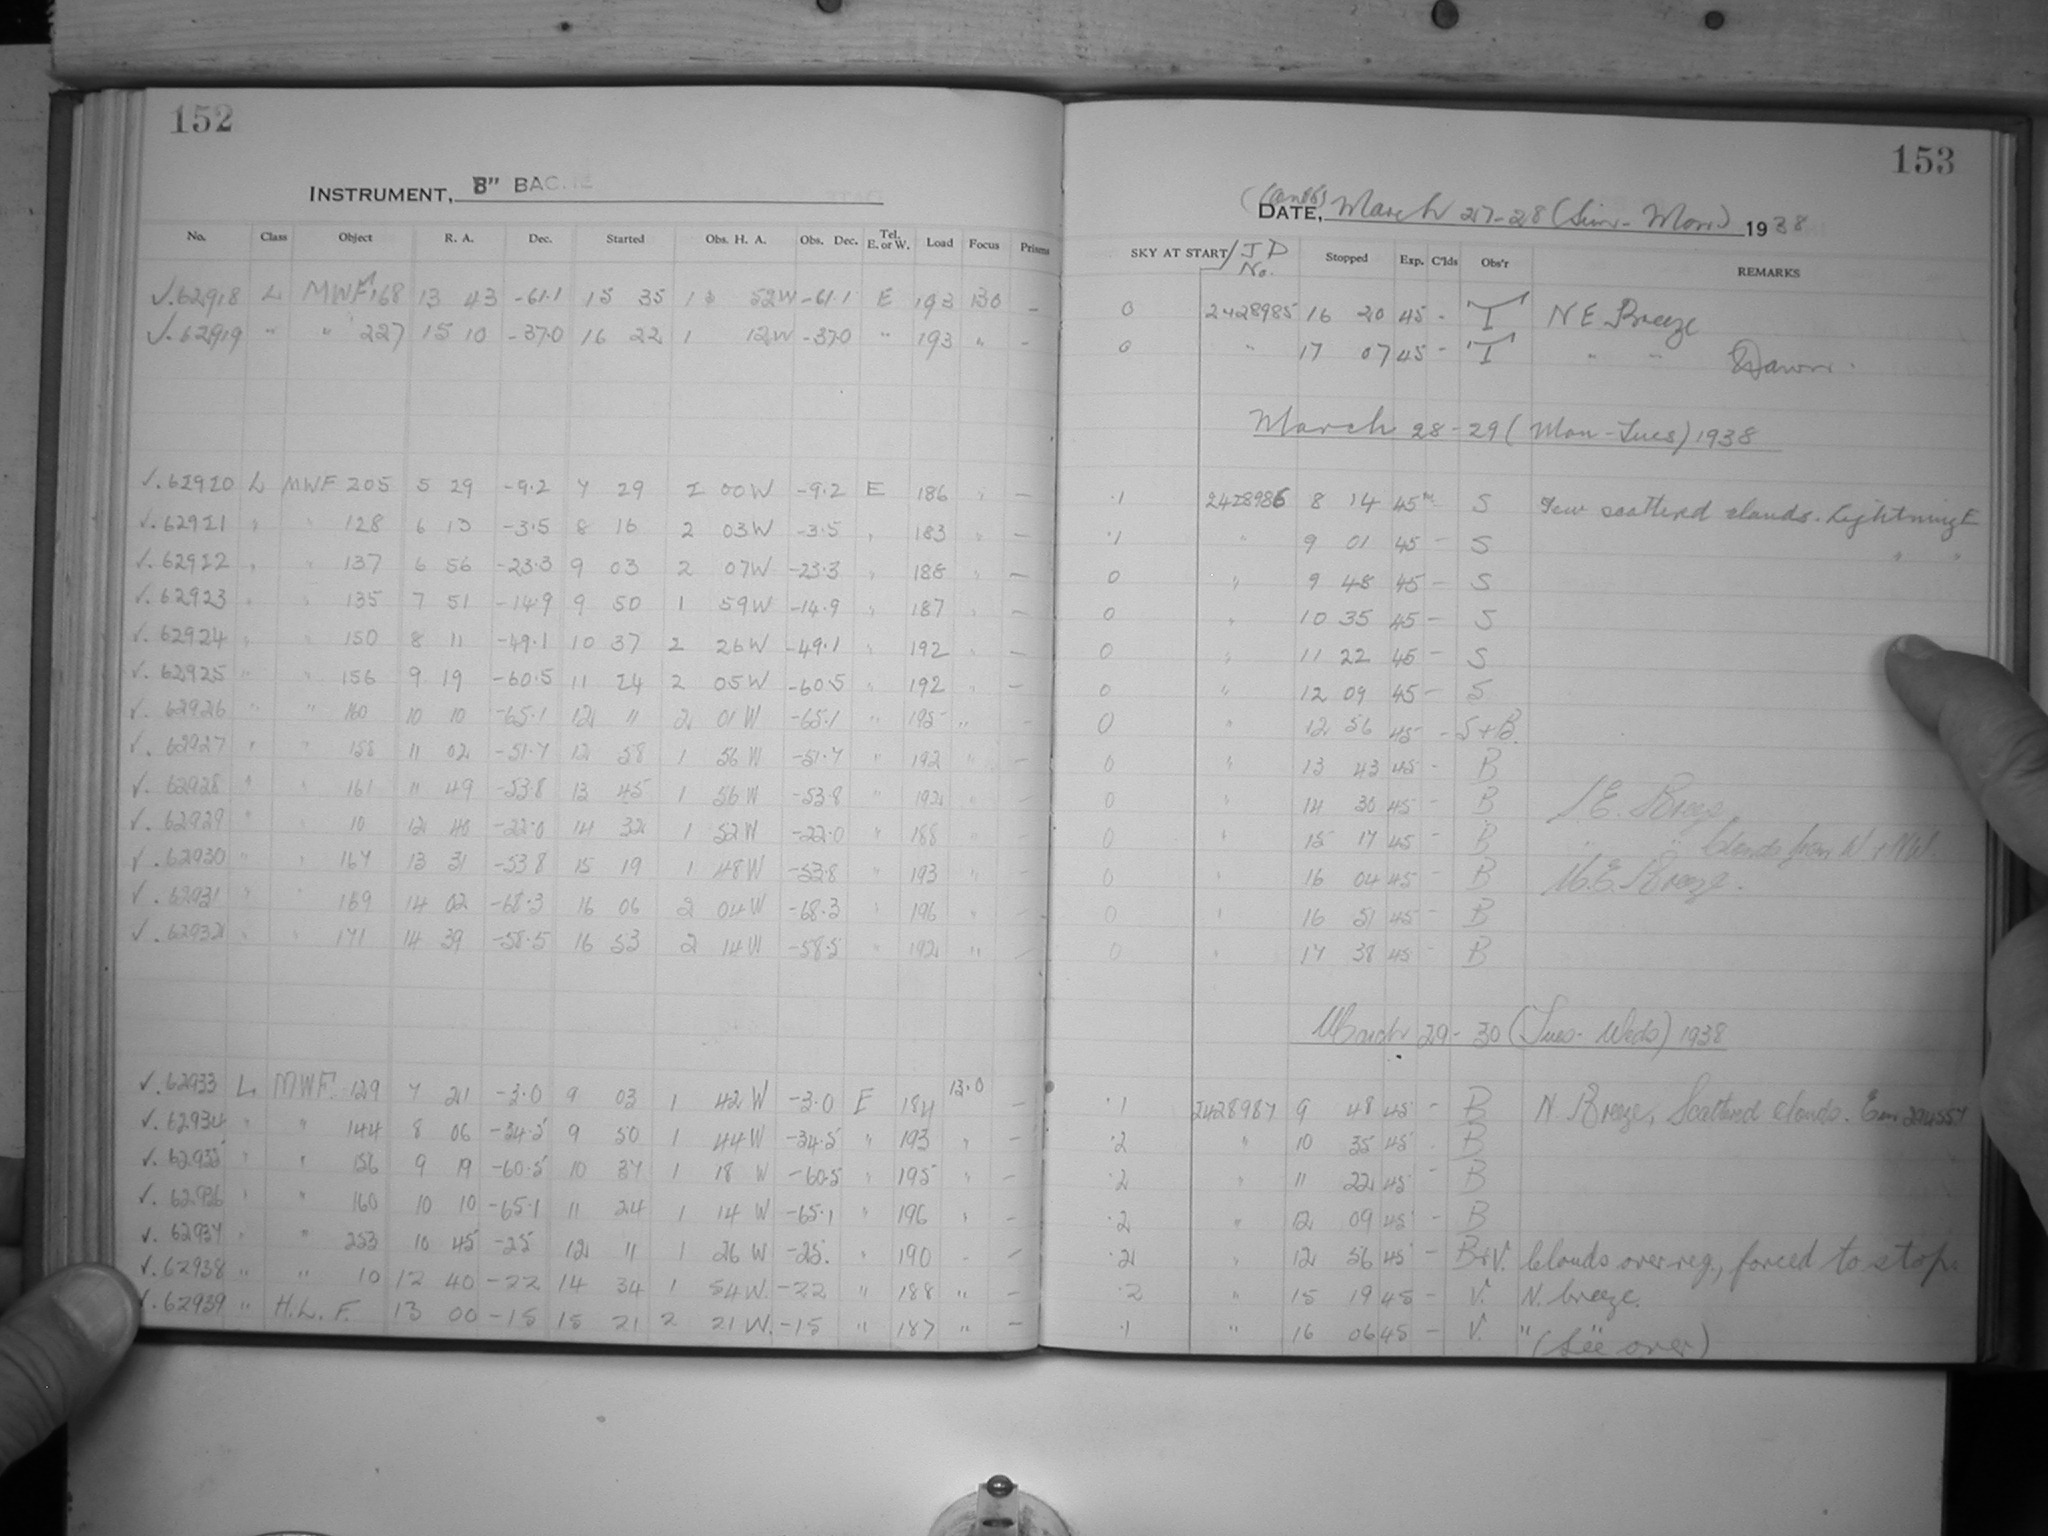 152
INSTRUMENT, 8" BACHE
No. Class Object R. A. Dec. Started Obs. H. A. Obs. Dec. Tel. E. or W. Load Focus Prisms
√.62918 L MWF 168 13 43 -61.1 15 35 1 52W -61.1 E 193 130 -
√.62919 " " 227 15 10 -37.0 16 22 1 12W -37.0 " 193 " -
√.62920 L MWF 205 5 29 -9.2 7 29 2 00W -9.2 E 186 " -
√.62921 " " 128 6 13 -3.5 8 16 2 03W -3.5 " 183 " -
√.62922 " " 137 6 56 -23.3 9 03 2 07W -23.3 " 188 " -
√.62923 " " 135 7 51 -14.9 9 50 1 59W -14.9 " 187 " -
√.62924 " " 150 8 11 -49.1 10 37 2 26W -49.1 " 192 " -
√.62925 " " 156 9 19 -60.5 11 24 2 05W -60.5 " 192 " -
√.62926 " " 160 10 10 -65.1 12 11 2 01W -65.1 " 195 " -
√.62927 " " 158 11 02 -51.7 12 58 1 56W -51.7 " 192 " -
√.62928 " " 161 11 49 -53.8 13 45 1 56W -53.8 " 192 " -
√.62929 " " 10 12 40 -22.0 14 32 1 52W -22.0 " 188 " -
√.62930 " " 167 13 31 -53.8 15 19 1 48W -53.8 " 193 " -
√.62931 " " 169 14 02 -68.3 16 06 2 04W -68.3 " 196 " -
√.62932 " " 171 14 39 -58.5 16 53 2 14W -58.5 " 192 " -
√.62933 L MWF 129 7 21 -3.0 9 03 1 42W -3.0 E 184 13.0 -
√.62934 " " 144 8 06 -34.5 9 50 1 44W -34.5 " 193 " -
√.62935 " " 156 9 19 -60.5 10 37 1 18W -60.5 " 195 " -
√.62936 " " 160 10 10 -65.1 11 24 1 14W -65.1 " 196 " -
√.62937 " " 253 10 45 -25 12 11 1 26W -25. " 190 - -
√.62938 " " 10 12 40 -22 14 34 1 54W. -22 " 188 " -
√.62939 " H.L.F. 13 00 -15 15 21 2 21W. -15 " 187 " -
153
DATE, March 27-28 (Sun-Mon) 1938
SKY AT START / JD No. Stopped Exp. C'lds Obs'r REMARKS
0 2428985 16 20 45 - T N E Breeze
0 " 17 07 45 - T " " Dawn.
March 28-29 (Mon-Tues) 1938
.1 2428986 8 14 45m S Few scattered clouds. Lightning E
.1 " 9 01 45 - S " "
0 " 9 48 45 - S
0 " 10 35 45 - S
0 " 11 22 45 - S
0 " 12 09 45 - S
0 " 12 56 45 - S+B.
0 " 13 43 45 - B
0 " 14 30 45 - B S.E. Breeze.
0 " 15 17 45 - B " " Clouds from W + NW
0 " 16 04 45 - B N.E. Breeze.
0 " 16 51 45 - B
0 " 17 38 45 - B
March 29-30 (Tues-Weds) 1938
.1 2428987 9 48 45 - B N. Breeze, Scattered clouds.
.2 " 10 35 45 - B
.2 " 11 22 45 - B
.2 " 12 09 45 - B
.2 " 12 56 45 - B+V. Clouds over reg, forced to stop.
.2 " 15 19 45 - V. N. breeze.
.1 " 16 06 45 - V. "
(See over)